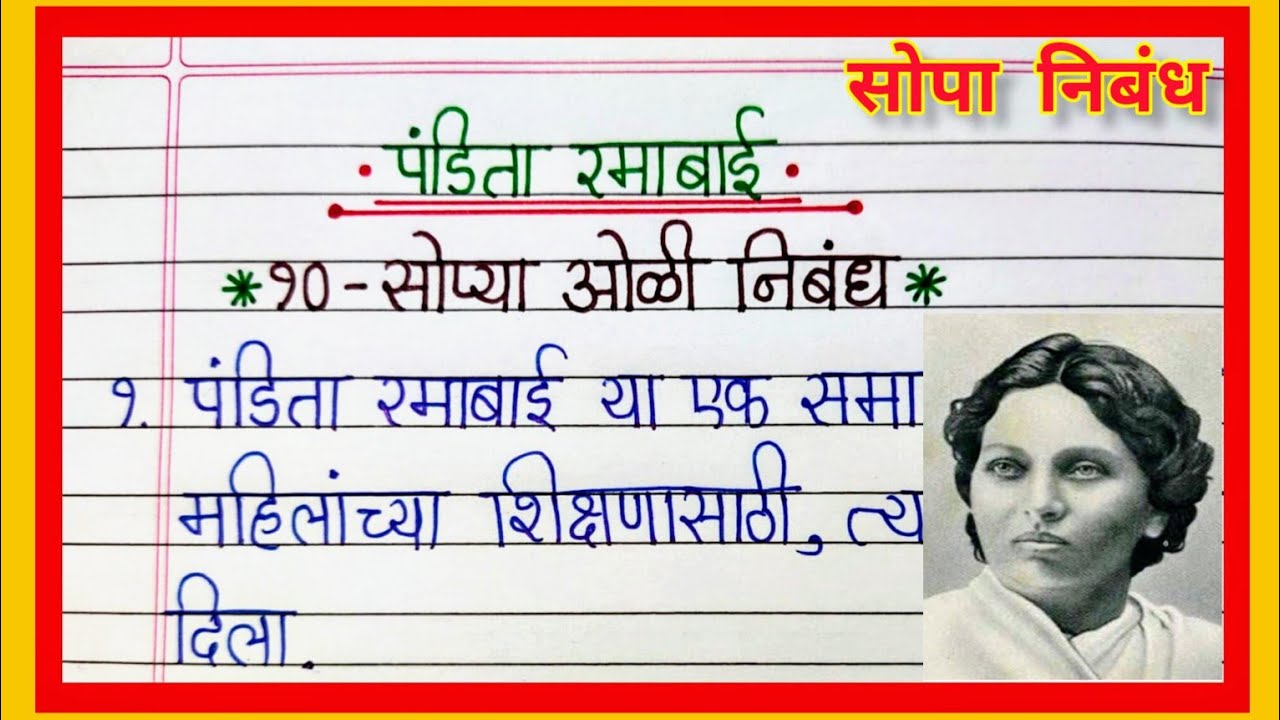 सोपा निबंध
पंडिता रमाबाई
*१०-सोप्या ओळी निबंध*
१. पंडिता रमाबाई या एक समा
महिलांच्या शिक्षणासाठी, त्य
दिला.